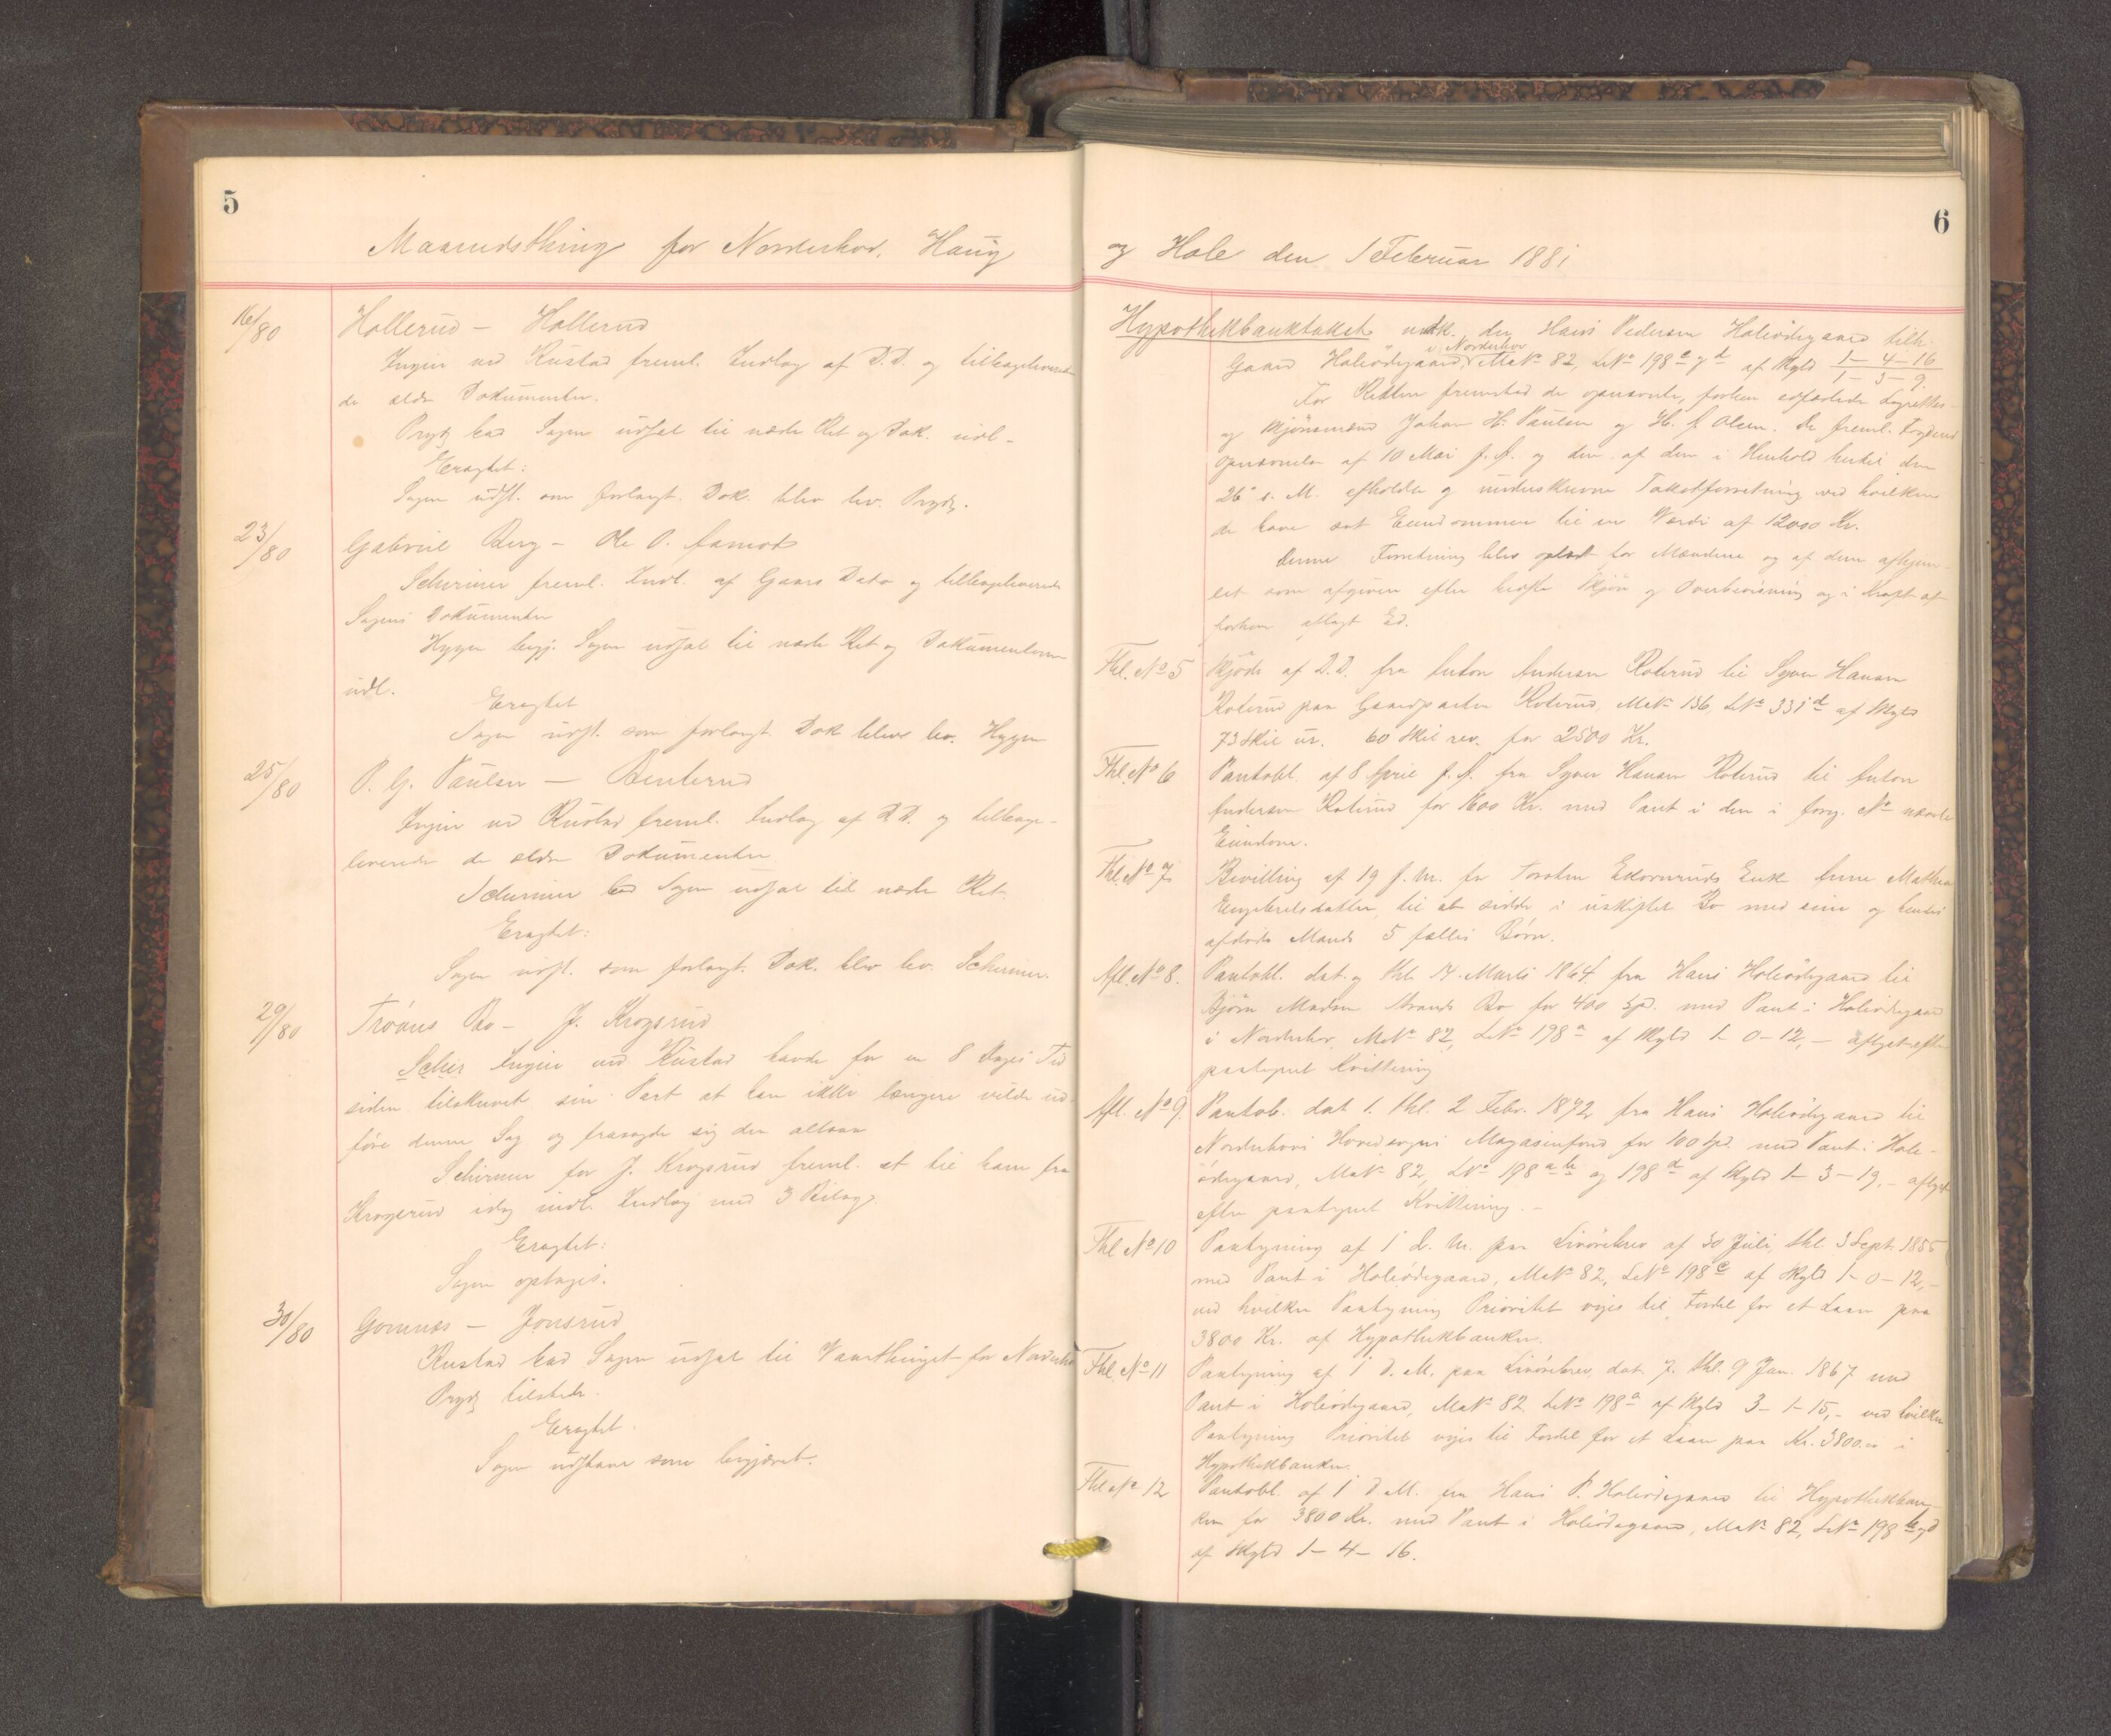 5
Maanedsthing for Norderhov, Haug
16/80 Hollerud – Hollerud
Ingier ved Rustad freml. Indlæg af D.D. og tilbageleverede
de ældre Dokumenter.
Prydz bad Sagen udsat til næste Ret og Dok. udl.
Eragtet:
Sagen udst. som forlangt. Dok. blev lev. Prydz.
23/80 Gabriel Berg – Ole O. Aamodt
Schirmer freml. Indl. af Gaars Dato og tilbageleverede
Sagens Dokumenter
Hygen begj. Sagen udsat til næste Ret og Dokumenterne
udl.
Eragtet
Sagen udst. som forlangt. Dok bleve lev. Hygen
25/80 P. G. Paulsen – Benterud
Ingier ved Rustad freml. Indlæg af D.D. og tilbage-
leverede de ældre Dokumenter
Schirmer bad Sagen udsat til næste Ret.
Eragtet:
Sagen udst. som forlangt. Dok. blev lev. Schirmer.
29/80 Bo – J. Krogsrud
Ingier ved Rustad havde for en 8 Dages Tid
siden tilskrevet sin Part at han ikke længere vilde ud-
føre denne Sag og frasagde sig den altsaa
Schirmer for J. Krogsrud freml. et til ham fra
Krogsrud idag indl. Indlæg med 3 Bilag.
Eragtet:
Sagen optages.
30/80 Gomnæs – Jonsrud
Rustad bad Sagen udsat til Vaarthinget for Norderhov
Prydz tilstede.
Eragtet
Sagen udstaar som begjæret.
6
og Hole den 1 Februar 1881
Hypothekbanktakst den Hans Pedersen Holeødegaard tilh.
i Norderhov
Gaard Holeødegaard, Mat No 82, LNo 198 og d af Skyld 1–4–16
1–3–9.
For Retten fremstod de opnævnte, forhen edfæstede Lagrettes-
og Skjønsmænd Johan H. Paulsen og H. J. Olsen. De freml. Fogdens
Opnævnelse af 10 Mai f. A. og den af dem i Henhold hertil den
26 s. M. afholdte og underskrevne Takstforretning ved hvilken
de have sat Eiendommen til en Værdi af 12000 Kr.
Denne Forretning blev oplæst for Mændene og af dem afhjem-
let som afgiven efter bedste Skjøn og Overbevisning og i Kraft af
forhen aflagt Ed.
Thl. No 5 Skjøde af D.D. fra Anton Andersen Roterud til Syver Hansen
Roterud paa Gaardparten Roterud, Mat No 136 LNo 331 d af Skyld
73 Skil ur. 60 Skil rev. for 2500 Kr.
Thl. No 6 Pantobl. af 8 April f. A. fra Syver Hansen Roterud til Anton
Andersen Roterud for 1600 Kr. med Pant i den i forrg. No nævnte
Eiendom.
Thl. No 7 Bevilling af 19 f. M. for Torsten Ekornruds Enke Anne Mathea
Engebretsdatter til at sidde i uskiftet Bo med sine og hendes
afdøde Mands 5 fælles Børn.
Afl. No 8. Pantobl. dat. og thl. 14 Marts 1864 fra Hans Holeødegaard til
Bjørn Madsen Strands Bo for 400 Spd. med Pant i Holeødegaard
i Norderhov, Mat No 82, LNo 198 a af Skyld 1–0–12, – aflyst efter
paategnet Kvittering
Afl. No 9. Pantob. dat 1. thl. 2 Febr. 1872 fra Hans Holeødegaard til
Norderhovs Hovedsogns Magasinfond for 100 Spd. med Pant i Hole-
ødegaard, Mat No 82, LNo 198 a b og 198 d af Skyld 1–3–19, – aflyst
efter paategnet Kvittering. –
Thl No 10 Paategning af 1 d. M. paa Livørebrev af 30 Juli, thl. 3 Sept 1855
med Pant i Holeødegaard, Mat No 82, LNo 198 af Skyld 1–0–12, –
ved hvilken Paategning Prioritet viges til Fordel for et Laan paa
3800 Kr. af Hypothekbanken.
Thl. No 11 Paategning af 1 d. M. paa Livørebrev dat. 7. thl. 9 Jan. 1867 med
Pant i Holeødegaard, Mat No 82 LNo 198 a af Skyld 3–1–15, – ved hvilken
Paategning Prioritet viges til Fordel for et Laan paa Kr. 3800.00 i
Hypothekbanken.
Thl No 12 Pantobl. af 1 d. M. fra Hans P. Holeødegaard til Hypothekban-
ken for 3800 Kr. med Pant i Holeødegaard, Mat No 82, LNo 198 b og d
af Skyld 1–4–16.